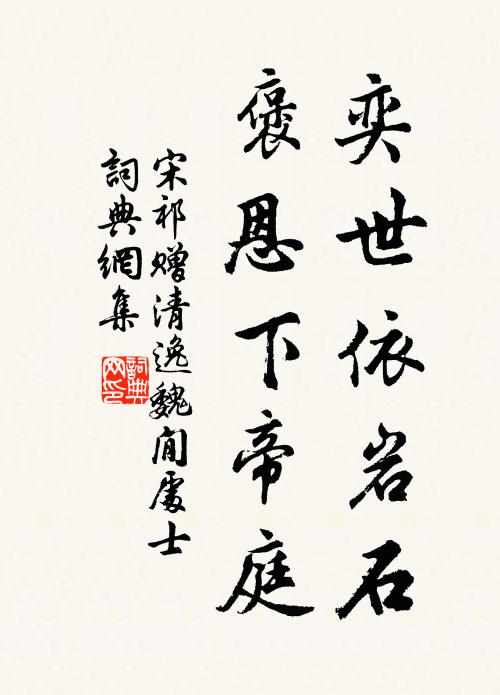 奕世依岩石
褒恩下帝庭
宋祁赠清逸魏閒處士
詞典網集
詞典
网印